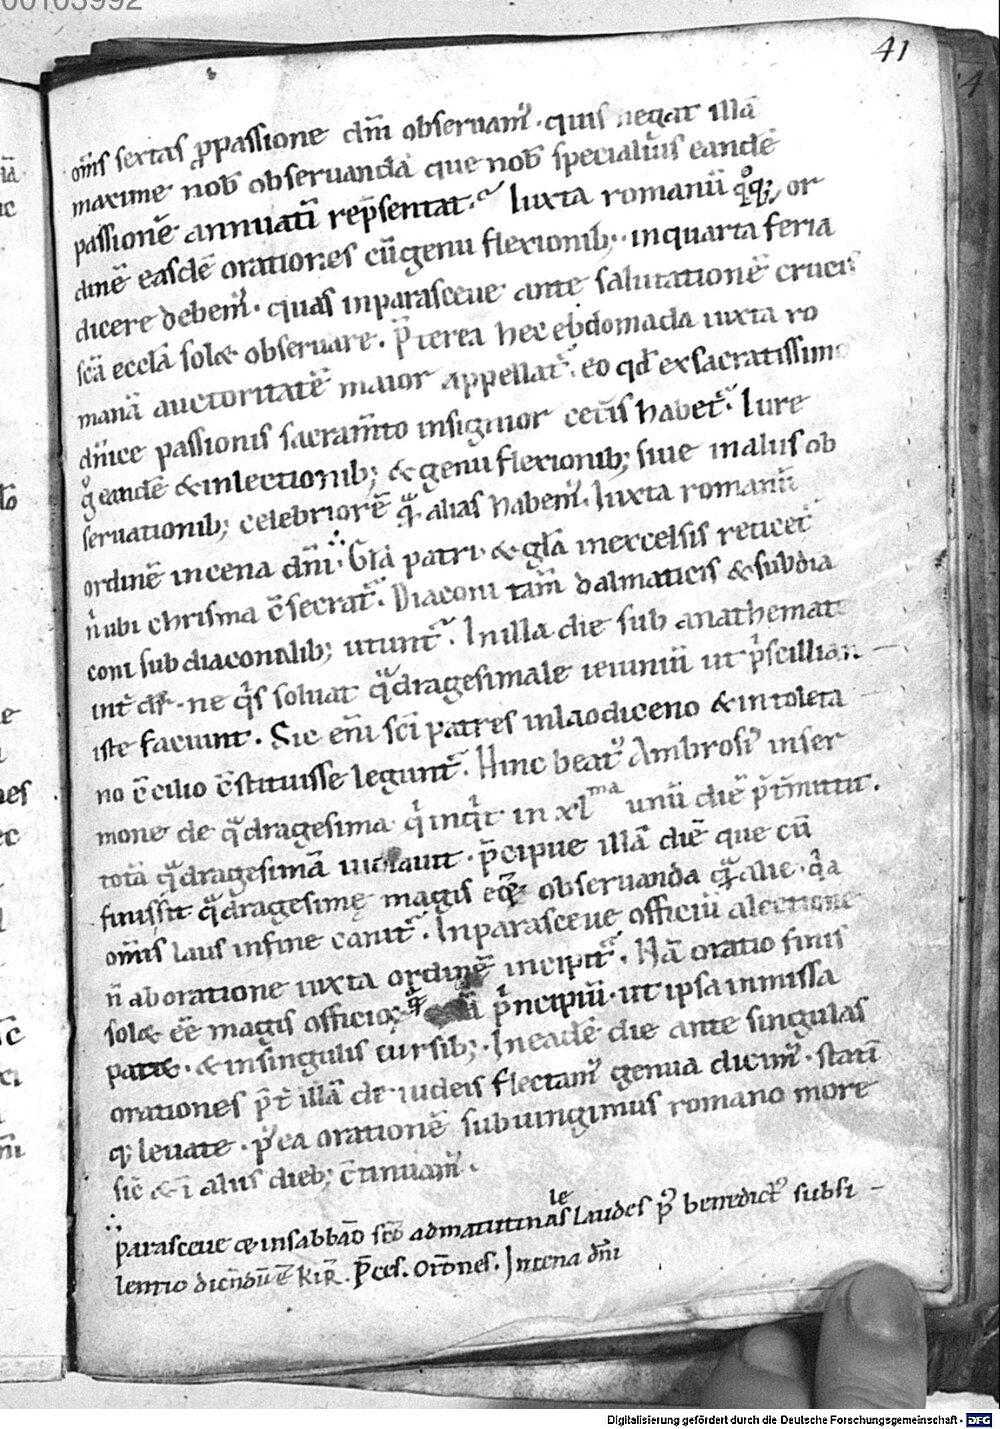 00103992
41
om̅is sextas ꝓpassione dn̅i obseruam᷒. quis negat illā
maxime nob̄ obseruandā que nob̄ specialius eandē
passionē annuatī rep̄sentat. Iuxta romanū q̊q; or
dinē easdē orationes cū genu flexionib; in quarta feria
dicere debem᷒. quas in parasceue ante salutationē crucis
sc̄a eccl̄a solæ obseruare. P̄terea hec ebdomada iuxta ro
manā auctoritatē maior appellat᷑. eo qd̄ ex sacratissimo
dn̄ice passionis sacram̄to insignior cet̄is habet᷑. Iure
g̊ eandē & in lectionib; & genu flexionib; siue in aliis ob
seruationib; celebriorē qͣ̄ alias habem᷒. Iuxta romanū
ordinē in cena dn̄i. Gl̄a patri & gl̄a in excelsis reticet᷑
n̄ ubi chrisma c̄secrat᷑. Diaconi tam̄ dalmaticis & subdia
coni subdiaconalib; utunt᷑. In illa die sub anathemate
int̄dr̄. ne qͥs soluat qͣdragesimale ieiuniū ut pͥscillian
iste faciunt. Sic eni̅ sc̄i patres in laodiceno & in toleta
no c̄cilio c̄stituisse legunt᷑. Hinc beat᷒ Ambrosi᷒ in ser
mone de qͣdragesima qͥ inqͥt in xl ma unū diē p̄t̄mittit.
totā qͣdragesimā uiolauit. p̄cipue illā diē que cū
finissit qͣdragesimę magis eq; obseruanda qͣ̄ alie. qͥa
om̅is laus in fine canit᷑. In parasceue officiū a lectione
n̄ ab oratione iuxta ordinē incipit᷑. Nā oratio finis
solæ ēē magis officioꝝ qͣ̄ pͥncipiū. ut ipsa in missa
patæ. & in singulis cursib;. In eadē die ante singulas
orationes p̄t̄ illā de iudeis flectam᷒ genua dicim᷒. statī
q; leuate. P᷒ea orationē subiungimus romano more
sic̄ & ī aliis dieb; c̄tinuam᷒.
parasceue & in sabbāo sc̄o ad matutinas le Laudes p᷒ benedict᷒ sub si
lentio dicn̄dū ē kir̄. P̄ces. Or̄ones. In cena dn̄i
Digitalisierung gefördert durch die Deutsche Forschungsgemeinschaft - DFG